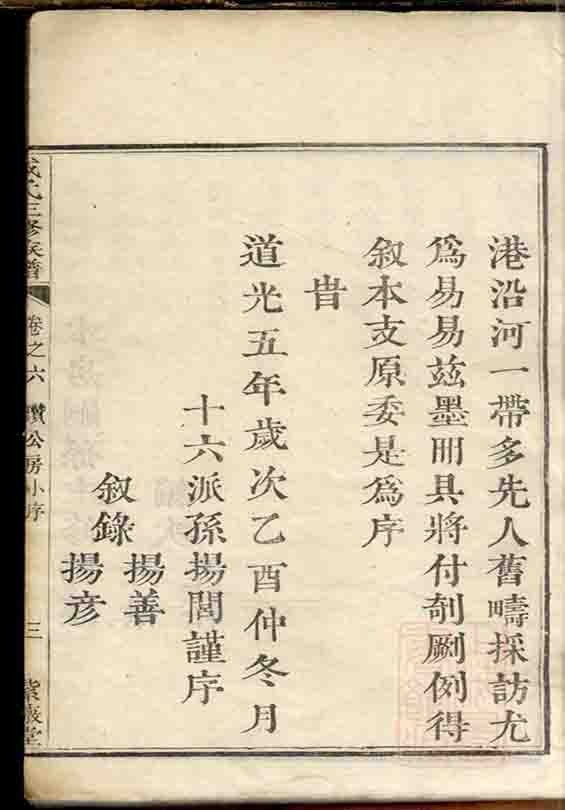 港沿河一帶多先人舊疇採訪尤
爲易易兹墨冊具將付剞劂例得
叙本支原委是爲序
旹
道光五年歲次乙酉仲冬月
十六派孫揚閭謹序
叙錄
揚善
揚彦
氏三修族譜
卷之六
公房小序
三
紫巖堂